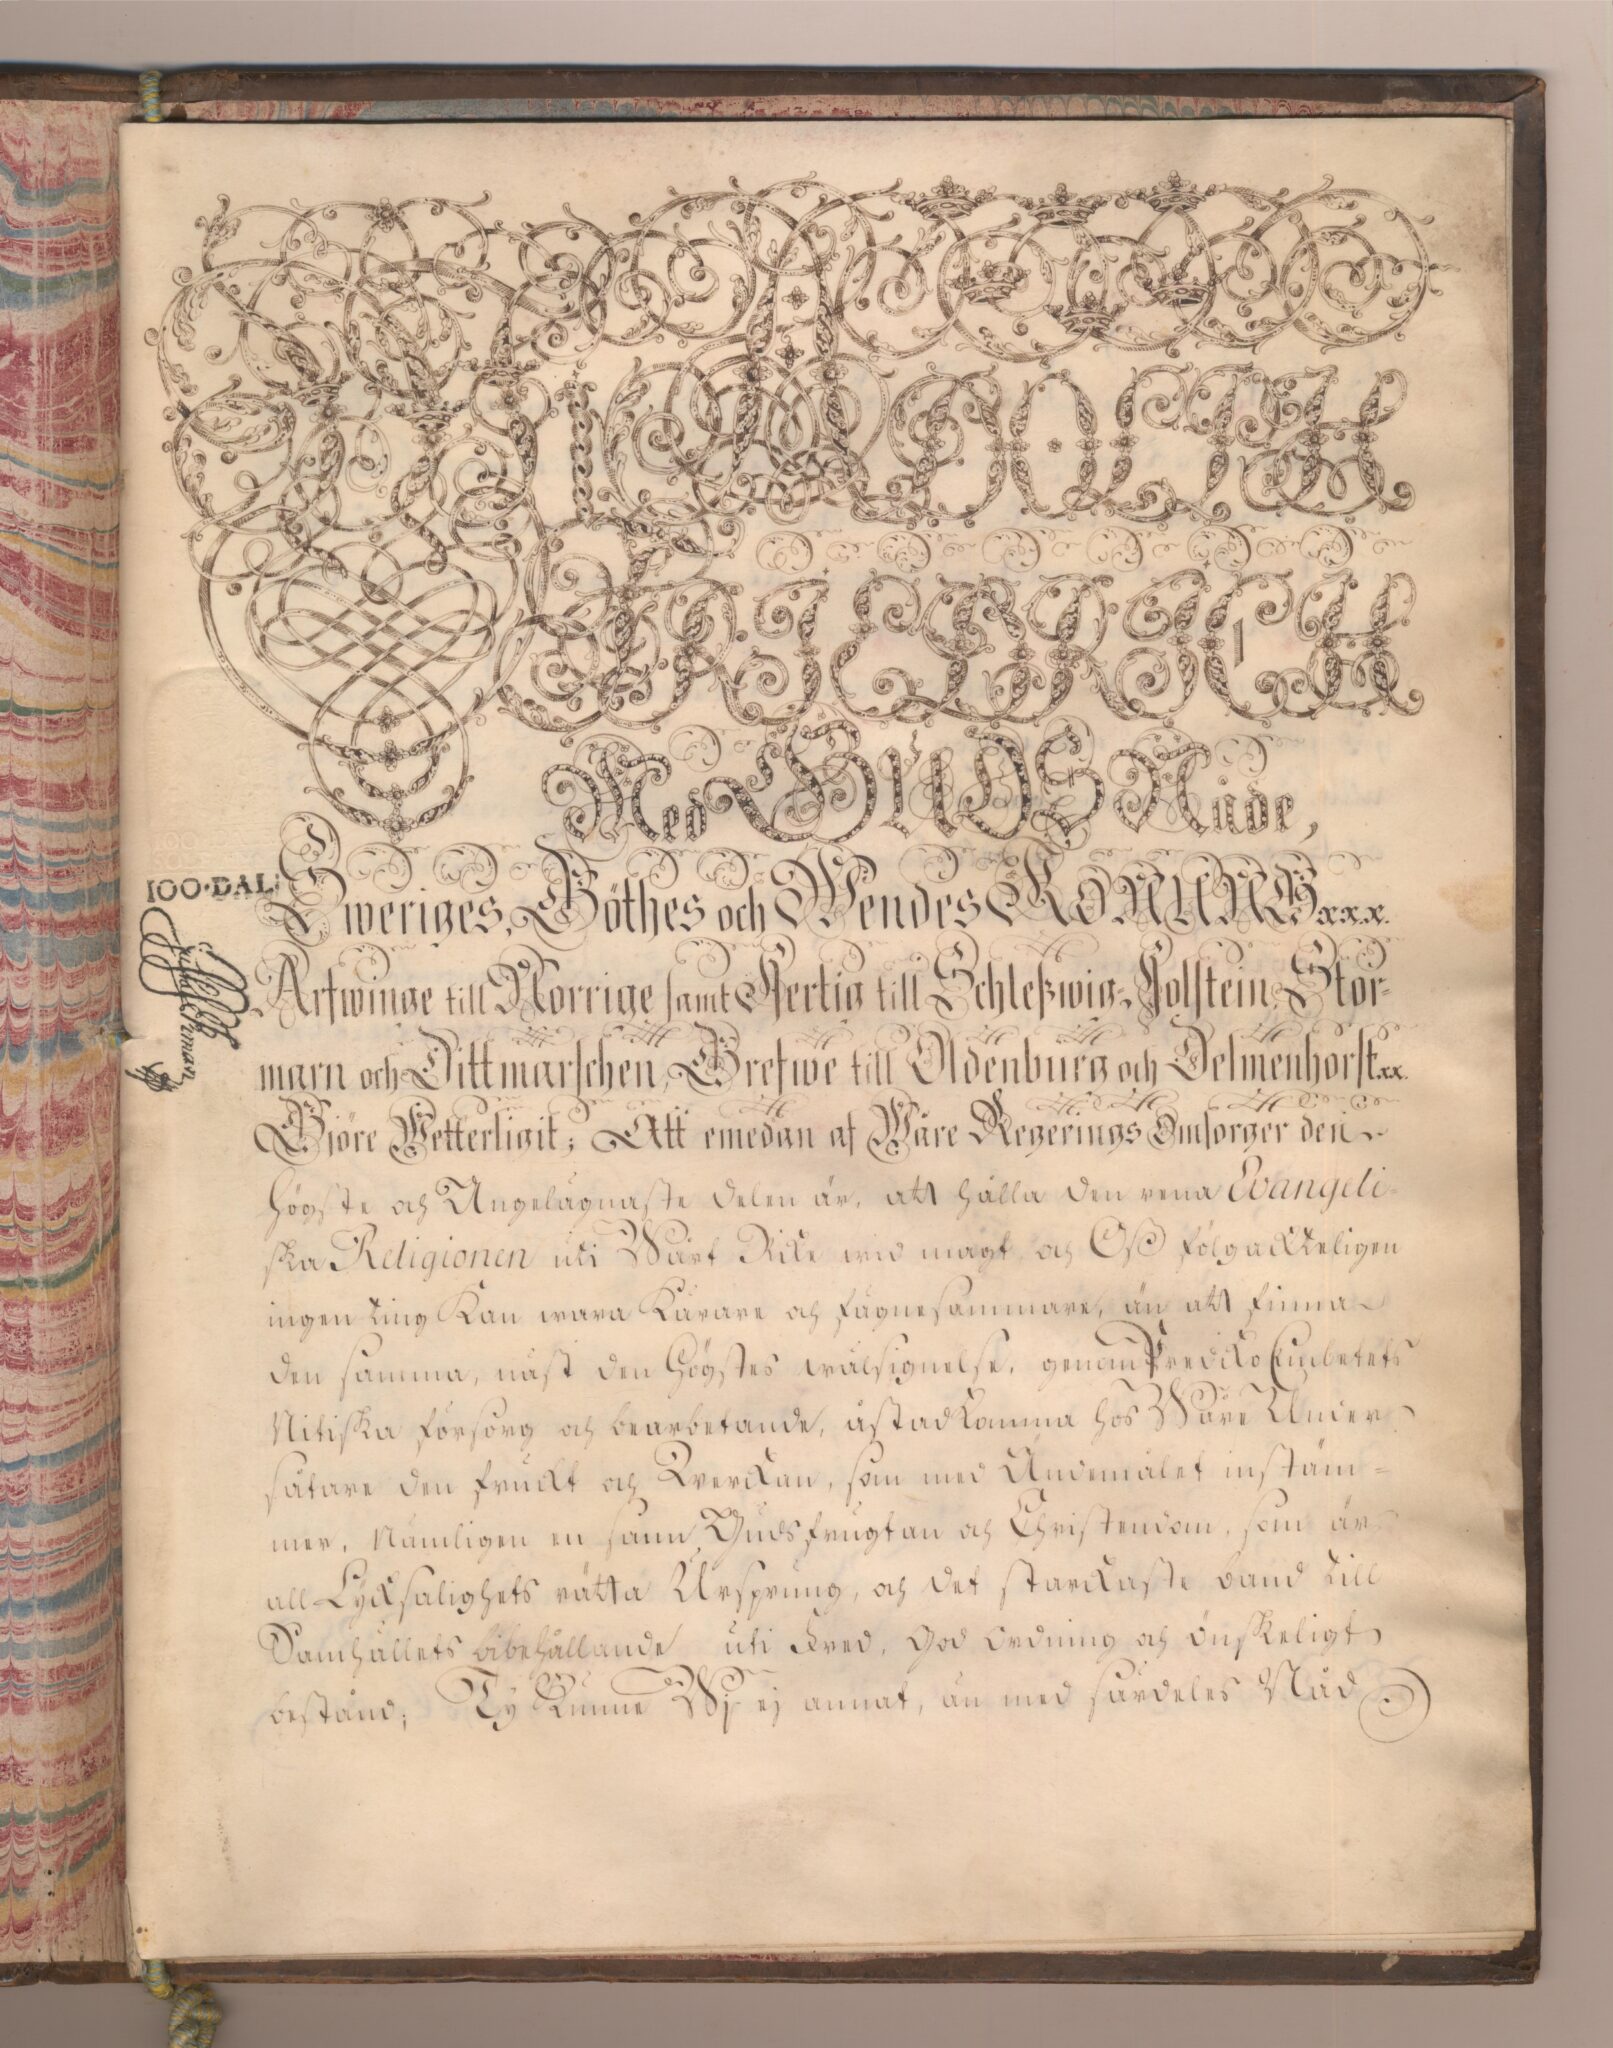 Wi ADOLPH
FRIEDRICH
Med GUDS Nåde,
Sweriges, Göthes och Wendes KONUNG x.x.x.
Arfwinge till Norrige samt Hertig till Schleßwig-Holstein, Stor-
marn och Dittmarschen, Grefwe till Oldenburg och Delmenhorst x.x.
Giöre Wetterligit; Att emedan af Wåre Regerings Omsorger den
högste och Angelägnaste delen är, att hålla den rena Evangeli-
ska Religionen uti Wårt Rike wid magt och Oß följackteligen
ingen ting kan wara kärare och fägnesammare, än att finna
den samma, näst den Högstes wälsignelse, genom Prediko Embetets
Nitiska försorg och bearbetande, åstadkomma hos Wåre Under-
såtare den fruckt och Werckan, som med Ändemålet instäm-
mer, Nämligen en sann Gudsfrugtan och Christendom, som är
all Lycksalighets rätta Ursprung, och det starckaste band till
Samhällets bibehållande uti Fred, God Ordning och önskeligt
bestånd; Ty kunne Wj ej annat, än med särdeles Nåd
100·DAL: